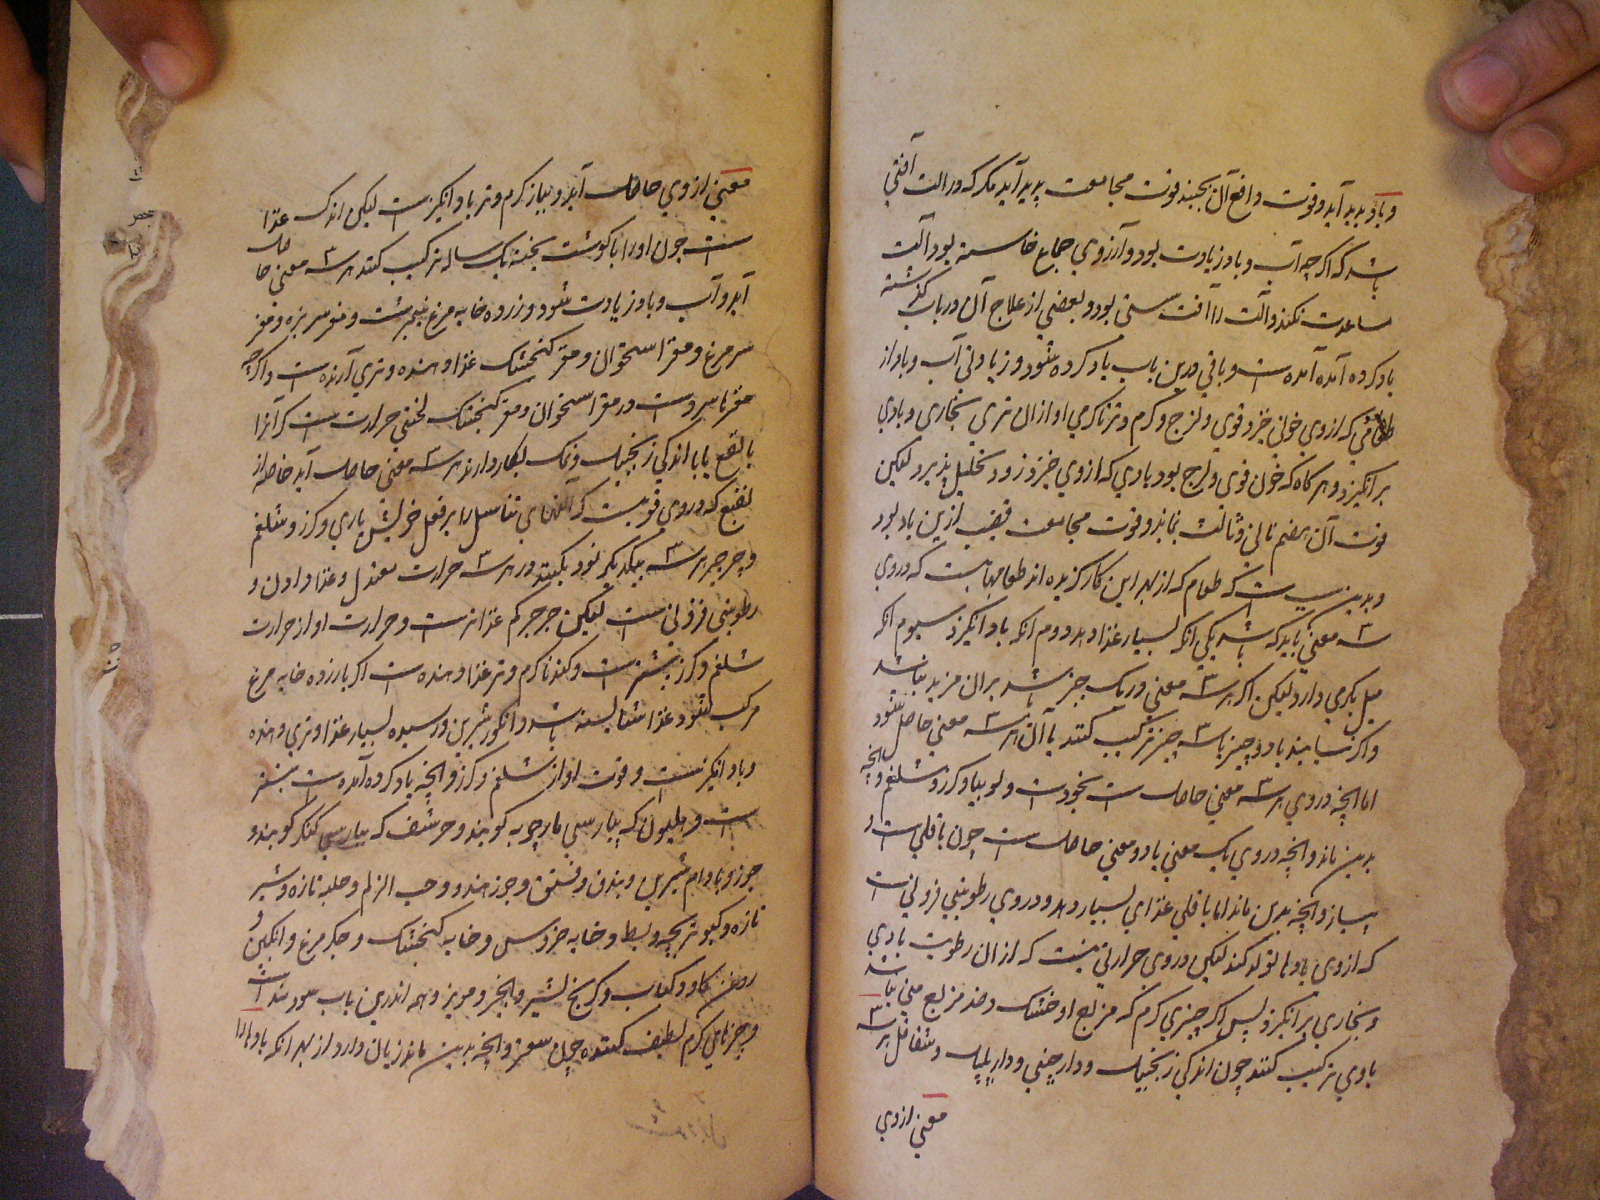 و باد پدید آید و قوت دافع آن بجنبد قوت مجامعت پدید آید مکر که در الت آفتی
باشد که اکر چه آب و باد زیادت بود و آرزوی جماع خاسته بود آلت
مساعدت نکند و الت را آفت سستی بود و بعضی از علاج آن در باب کذشته
یاد کرده آمده است و باقی درین باب یاد کرده شود و زیادتی آب و باد از
طعامی که از وی خون خیزد قوی و لزج و کرم و تر تا کرمی او از ان تری بخاری و بادی
بر انکیزد و هر کاه که خون قوی و لزج بود بادی که از وی خیزد زود تحلیل پذیرد لیکن
قوت آن بهضم ثانی و ثالث بماند و قوت مجامعت قضیب ازین باد بود
و بدین سبب است که طعام که از بهر این کار کزیده اند طعامهاست که در وی
سه معنی باید که باشد یکی انکه بسیار غذا دهد دوم انکه باد انکیزد سیوم انکه
میل بکرمی دارد لیکن اکر هر سه معنی در یک چیز باشد بران مزید نباشد
و اکر نیابند با دو چیز یا سه چیز ترکیب کنند تا آن هر سه معنی حاصل شود
اما انچه در وی هر سه معنی حاصل است نخودست و لوبیا و کزر و شلغم و انچه
بدین ماند و انچه در وی یک معنی یا دو معنی حاصل است چون باقلی است و
پیاز و انچه بدین ماند اما باقلی غذای بسیار دهد و در وی رطوبتی فزونی است
که از وی بادها تولد کند لیکن در وی حرارتی نیست که از ان رطوبت بادی
و بخاری بر انکیزد پس اکر چیزی کرم که مزاج او خشک و ضد مزاج منی نباشد
با وی ترکیب کنند چون اندکی زنجبیل و دارچینی و دارپلپل و شقاقل هر سه
معنی از وی
معنی از وی حاصل آید و پیاز کرم و تر باد انکیزست لیکن اندک غذا
است چون او را با کوشت پخته یک سال ترکیب کنند هر سه معنی حاصل
آید و آب و باد زیادت شود و زرده خایه مرغ نیم برشت و مغز سر بره و مغز
سر مرغ و مغز استخوان و مغز کنجشک غذا دهنده و تری آرنده است و اکرچه
مغزها سردست در مغز استخوان و مغز کنجشک لختی حرارت است که آنرا
با نفع یا با اندکی زنجبیل و نمک بکار دارند هر سه معنی حاصل آید خاصه از
نفع که در وی قوتیست که اندامهای تناسل را بر فعل خویش یاری و کزر و شلغم
و جرجیر هر سه بیکدیکر نزدیکند و در هر سه حرارت معتدل و غذا دادن و
رطوبتی فزونی است لیکن جرجیر کم غذاترست و حرارت او از حرارت
شلغم و کزر بیشترست و کندنا کرم و تر غذا دهنده است اکر با زرده خایه مرغ
مرکب شود غذا شایسته باشد و انکور شیرین و رسیده بسیار غذا و تری دهنده
و باد انکیزست و قوت او از شلغم و کزر و انچه یاد کرده آمده است بیشتر
است و هلیون که بپارسی مارچوبه کویند و حرشف که بپارسی کنکر کویند و
جوز و بادام شیرین و بندق و فستق و جوز هندو و حب الزلم و حلبه تازه و شیر
تازه و کبوتر بچه و بط و خایه خروس و خایه کنجشک و جکر مرغ و انکبین و
روغن کاو و کعاب و کرنج بشیر و انجیر و مویز و همه اندرین باب سودمند است
و چیزهای کرم لطیف کننده چون سعتر و انچه بدین ماند زیان دارد از بهر انکه بادها را